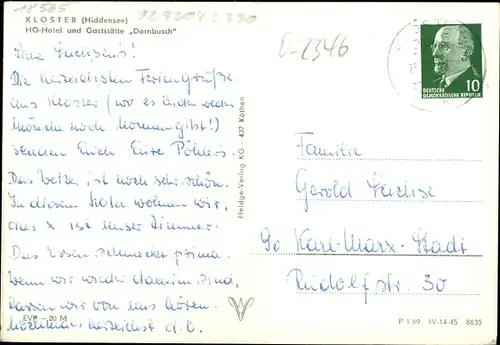 18585
0293042330
KLOSTER (Hiddensee)
HO-Hotel und Gaststätte „Dornbusch"
0-2346
10
DEUTSCHE
DEMOKRATISCHE REPUBLIK
Liebe Sachsens!
Die herzlichsten Feriengrüße
aus Kloster (wo es leider weder
Mönche noch Nonnen gibt!)
senden Euch Eure Pöhlers.
Das Wetter ist noch sehr schön.
In diesem Hotel wohnen wir,
das x ist unser Zimmer.
Das Essen schmeckt prima.
Wenn wir wieder daheim sind,
lassen wir von uns hören.
Nochmals herzlichst d. O.
Heldge-Verlag KG - 437 Köthen
Familie
Gerold Sachse
90 Karl-Marx-Stadt
Rudolfstr. 30
EVP - 20 M
P 1/69 IV-14-45 8835